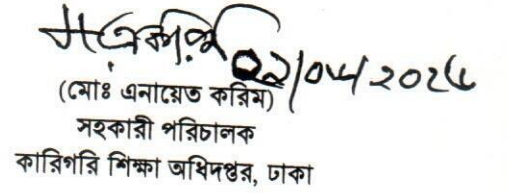 (মোঃ এনায়েত করিম)
সহকারী পরিচালক
কারিগরি শিক্ষা অধিদপ্তর, ঢাকা